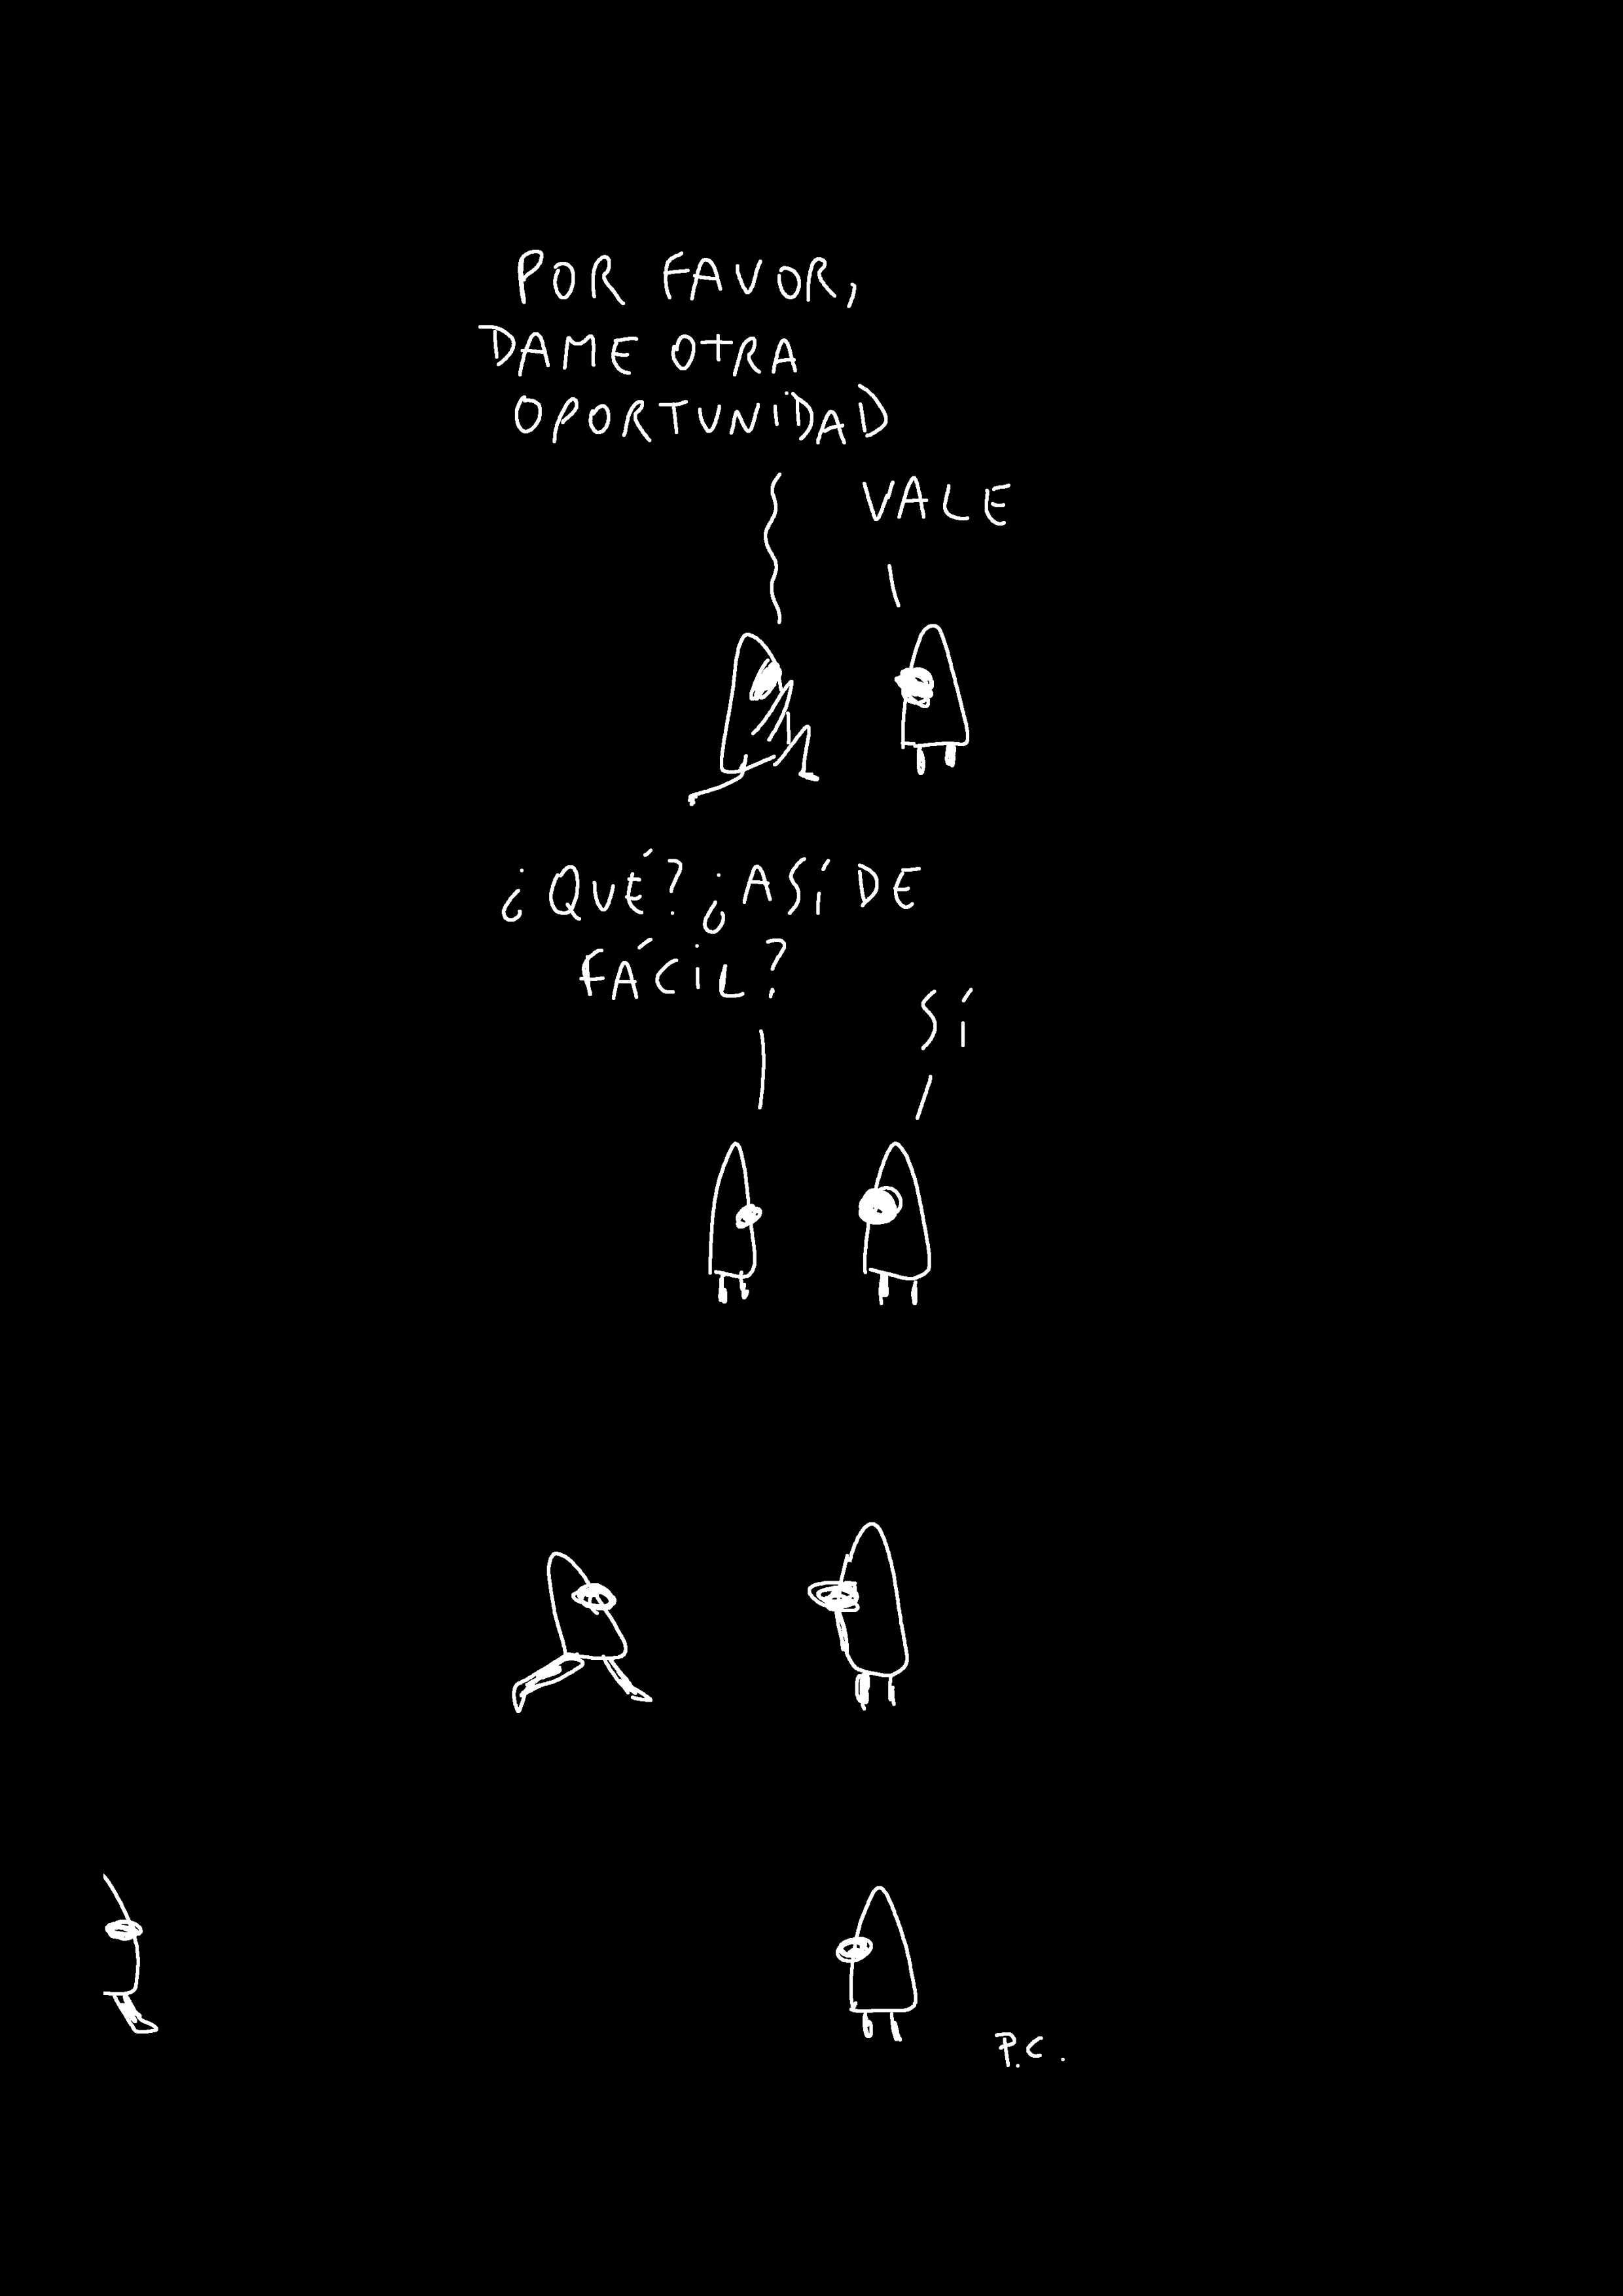 POR FAVOR,
DAME OTRA
OPORTUNIDAD
VALE
¿QUÉ? ¿ASÍ DE
FÁCIL?
SÍ
P.C.